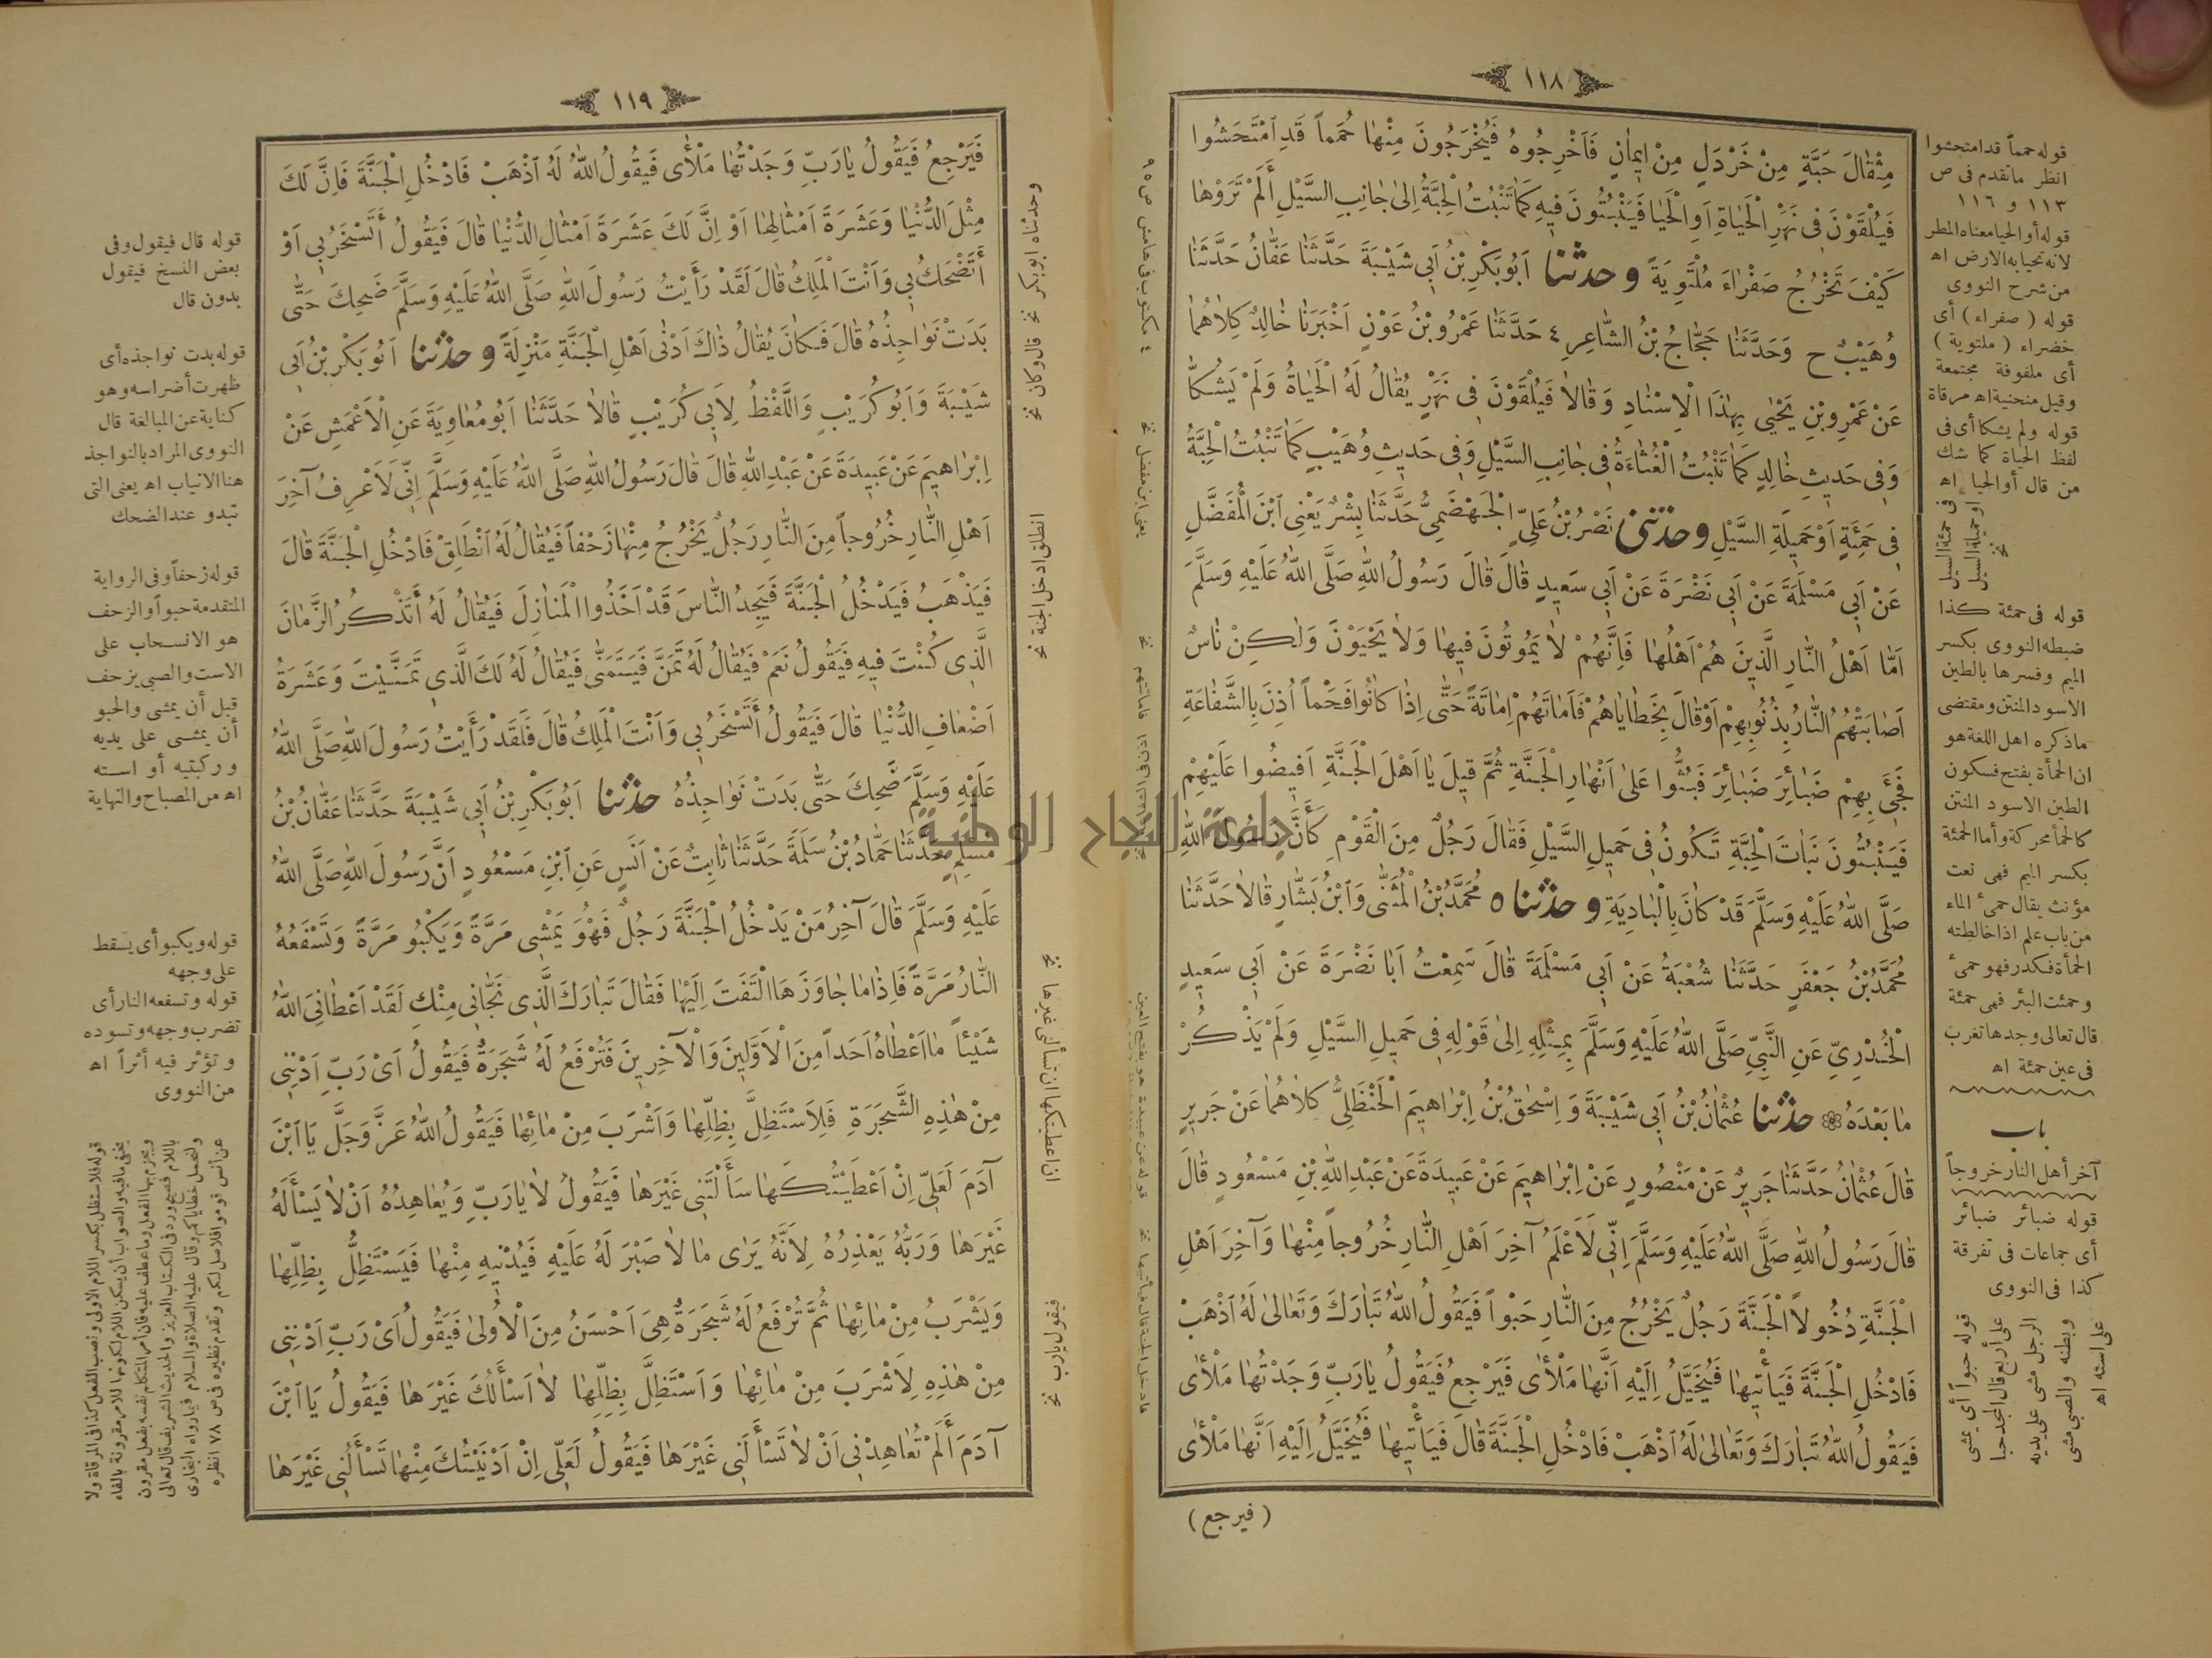 ١١٨
مِثْقٰالَ حَبَّةٍ مِنْ خَرْدَلٍ مِنْ ايمٰانٍ فَاَخْرِجُوهُ فَيُخْرَجُونَ مِنْهٰا حُمَماً قَدِ امْتَحَشُوا
فَيُلْقَوْنَ فى نَهَرِ الْحَيٰاةِ اَوِ الْحَيٰا فَيَنْبُتُونَ فيهِ كَمٰا تَنْبُتُ الْحِبَّةُ اِلىٰ جٰانِبِ السَّيْلِ أَلَمْ تَرَوْهٰا
كَيْفَ تَخْرُجُ صَفْرٰاءَ مُلْتَوِيَةً و حدثنا اَبُوبَكْرِ بْنُ اَبى شَيْبَةَ حَدَّثَنٰا عَفّٰانُ حَدَّثَنٰا
وُهَيْبٌ ح وَحَدَّثَنٰا حَجّٰاجُ بْنُ الشّٰاعِرِ ٤ حَدَّثَنٰا عَمْرُو بْنُ عَوْنٍ اَخْبَرَنٰا خٰالِدٌ كِلاٰهُمٰا
عَنْ عَمْرِو بْنِ يَحْيٰى بِهٰذَا الْاِسْنٰادِ وَقٰالاٰ فَيُلْقَوْنَ فى نَهَرٍ يُقٰالُ لَهُ الْحَيٰاةُ وَلَمْ يَشُكّٰا
وَفى حَديثِ خٰالِدٍ كَمٰا تَنْبُتُ الْغُثٰاءَةُ فى جٰانِبِ السَّيْلِ وَفى حَديثِ وُهَيْبٍ كَمٰا تَنْبُتُ الْحِبَّةُ
فى حَمِئَةٍ اَوْ حَميلَةِ السَّيْلِ و حدثنى نَصْرُ بْنُ عَلِىٍّ الْجَهْضَمِىُّ حَدَّثَنٰا بِشْرٌ يَعْنِى ابْنَ الْمُفَضَّلِ
عَنْ اَبى مَسْلَمَةَ عَنْ اَبى نَضْرَةَ عَنْ اَبى سَعيدٍ قٰالَ قٰالَ رَسُولُ اللّٰهِ صَلَّى اللّٰهُ عَلَيْهِ وَسَلَّمَ
اَمّٰا اَهْلُ النّٰارِ الَّذينَ هُمْ اَهْلُهٰا فَاِنَّهُمْ لاٰ يَمُوتُونَ فيهٰا وَلاٰ يَحْيَوْنَ وَلٰكِنْ نٰاسٌ
اَصٰابَتْهُمُ النّٰارُ بِذُنُوبِهِمْ اَوْقٰالَ بِخَطٰايٰاهُمْ فَاَمٰاتَهُمْ اِمٰاتَةً حَتّٰى اِذٰا كٰانُوا فَحْماً اُذِنَ بِالشَّفٰاعَةِ
فَجِئَ بِهِمْ ضَبٰائِرَ ضَبٰائِرَ فَبُثُّوا عَلىٰ اَنْهٰارِ الْجَنَّةِ ثُمَّ قيلَ يٰا اَهْلَ الْجَنَّةِ اَفيضُوا عَلَيْهِمْ
فَيَنْبُتُونَ نَبٰاتَ الْحِبَّةِ تَكُونُ فى حَميلِ السَّيْلِ فَقٰالَ رَجُلٌ مِنَ الْقَوْمِ كَأَنَّ رَسُولَ اللّٰهِ
صَلَّى اللّٰهُ عَلَيْهِ وَسَلَّمَ قَدْ كٰانَ بِالْبٰادِيَةِ و حدثناه مُحَمَّدُ بْنُ الْمُثَنّٰى وَابْنُ بَشّٰارٍ قٰالاٰ حَدَّثَنٰا
مُحَمَّدُ بْنُ جَعْفَرٍ حَدَّثَنٰا شُعْبَةُ عَنْ اَبى مَسْلَمَةَ قٰالَ سَمِعْتُ اَبٰا نَضْرَةَ عَنْ اَبى سَعيدٍ
الْخُدْرِىِّ عَنِ النَّبِىِّ صَلَّى اللّٰهُ عَلَيْهِ وَسَلَّمَ بِمِثْلِهِ اِلىٰ قَوْلِهِ فى حَميلِ السَّيْلِ وَلَمْ يَذْكُرْ
مٰا بَعْدَهُ حدثنا عُثْمٰانُ بْنُ اَبى شَيْبَةَ وَ اِسْحٰقُ بْنُ اِبْرٰاهيمَ الْحَنْظَلِىُّ كِلاٰهُمٰا عَنْ جَريرٍ
قٰالَ عُثْمٰانُ حَدَّثَنٰا جَريرٌ عَنْ مَنْصُورٍ عَنْ اِبْرٰاهيمَ عَنْ عَبيدَةَ عَنْ عَبْدِ اللّٰهِ بْنِ مَسْعُودٍ قٰالَ
قٰالَ رَسُولُ اللّٰهِ صَلَّى اللّٰهُ عَلَيْهِ وَسَلَّمَ اِنّى لَاَعْلَمُ آخِرَ اَهْلِ النّٰارِ خُرُوجاً مِنْهٰا وَآخِرَ اَهْلِ
الْجَنَّةِ دُخُولاً الْجَنَّةَ رَجُلٌ يَخْرُجُ مِنَ النّٰارِ حَبْواً فَيَقُولُ اللّٰهُ تَبٰارَكَ وَتَعٰالىٰ لَهُ اذْهَبْ
فَادْخُلِ الْجَنَّةَ فَيَأْتيهٰا فَيُخَيَّلُ اِلَيْهِ اَنَّهٰا مَلْأٰى فَيَرْجِعُ فَيَقُولُ يٰارَبِّ وَجَدْتُهٰا مَلْأٰى
فَيَقُولُ اللّٰهُ تَبٰارَكَ وَتَعٰالىٰ لَهُ اذْهَبْ فَادْخُلِ الْجَنَّةَ قٰالَ فَيَأْتيهٰا فَيُخَيَّلُ اِلَيْهِ اَنَّهٰا مَلْأٰى
( فيرجع )
قوله حمماً قد امتحشوا
انظر ماتقدم فى ص
١١٣ و ١١٦
قوله أو الحيا معناه المطر
لانه تحيا به الارض اه
من شرح النووى
قوله ( صفراء ) أى
خضراء ( ملتوية )
أى ملفوفة مجتمعة
وقيل منحنية اه مرقاة
قوله ولم يشكا أى فى
لفظ الحياة كما شك
من قال أو الحيا اه
فى حمئة السيل
او حميلة السيل
نخ
قوله فى حمئة كذا
ضبطه النووى بكسر
الميم وفسرها بالطين
الاسود المنتن ومقتضى
ماذكره اهل اللغة هو
ان الحمأة بفتح فسكون
الطين الاسود المنتن
كالحمأ محركة وأما الحمئة
بكسر الميم فهى نعت
مؤنث يقال حمئ الماء
من باب علم اذا خالطته
الحمأة فكدر فهو حمئ
وحمئت البئر فهى حمئة
قال تعالى وجدها تغرب
فى عين حمئة اه
باب
آخر أهل النار خروجاً
قوله ضبائر ضبائر
أى جماعات فى تفرقة
كذا فى النووى
قوله حبواً أى يمشى
على أربع قال المجد حبا
الرجل مشى على يديه
وبطنه والصبى مشى
على استه اه
٤ مكتوب فى هامش ص ٩٥
يعنى ابن مفضل نخ
فاماتتهم نخ
جامعة النجاح الوطنية
١١٩
فَيَرْجِعُ فَيَقُولُ يٰارَبِّ وَجَدْتُهٰا مَلْأٰى فَيَقُولُ اللّٰهُ لَهُ اذْهَبْ فَادْخُلِ الْجَنَّةَ فَاِنَّ لَكَ
مِثْلَ الدُّنْيٰا وَعَشَرَةَ اَمْثٰالِهٰا اَوْ اِنَّ لَكَ عَشَرَةَ اَمْثٰالِ الدُّنْيٰا قٰالَ فَيَقُولُ أَتَسْخَرُ بى اَوْ
أَتَضْحَكُ بى وَاَنْتَ الْمَلِكُ قٰالَ لَقَدْ رَأَيْتُ رَسُولَ اللّٰهِ صَلَّى اللّٰهُ عَلَيْهِ وَسَلَّمَ ضَحِكَ حَتّٰى
بَدَتْ نَوٰاجِذُهُ قٰالَ فَكٰانَ يُقٰالُ ذٰاكَ اَدْنٰى اَهْلِ الْجَنَّةِ مَنْزِلَةً و حدثنا اَبُوبَكْرِ بْنُ اَبى
شَيْبَةَ وَاَبُوكُرَيْبٍ وَاللَّفْظُ لِاَبى كُرَيْبٍ قٰالاٰ حَدَّثَنٰا اَبُومُعٰاوِيَةَ عَنِ الْاَعْمَشِ عَنْ
اِبْرٰاهيمَ عَنْ عَبيدَةَ عَنْ عَبْدِ اللّٰهِ قٰالَ قٰالَ رَسُولُ اللّٰهِ صَلَّى اللّٰهُ عَلَيْهِ وَسَلَّمَ اِنّى لَاَعْرِفُ آخِرَ
اَهْلِ النّٰارِ خُرُوجاً مِنَ النّٰارِ رَجُلٌ يَخْرُجُ مِنْهٰا زَحْفاً فَيُقٰالُ لَهُ انْطَلِقْ فَادْخُلِ الْجَنَّةَ قٰالَ
فَيَذْهَبُ فَيَدْخُلُ الْجَنَّةَ فَيَجِدُ النّٰاسَ قَدْ اَخَذُوا الْمَنٰازِلَ فَيُقٰالُ لَهُ أَتَذْكُرُ الزَّمٰانَ
الَّذى كُنْتَ فيهِ فَيَقُولُ نَعَمْ فَيُقٰالُ لَهُ تَمَنَّ فَيَتَمَنّٰى فَيُقٰالُ لَهُ لَكَ الَّذى تَمَنَّيْتَ وَعَشَرَةُ
اَضْعٰافِ الدُّنْيٰا قٰالَ فَيَقُولُ أَتَسْخَرُ بى وَاَنْتَ الْمَلِكُ قٰالَ فَلَقَدْ رَأَيْتُ رَسُولَ اللّٰهِ صَلَّى اللّٰهُ
عَلَيْهِ وَسَلَّمَ ضَحِكَ حَتّٰى بَدَتْ نَوٰاجِذُهُ حدثنا اَبُوبَكْرِ بْنُ اَبى شَيْبَةَ حَدَّثَنٰا عَفّٰانُ بْنُ
مُسْلِمٍ حَدَّثَنٰا حَمّٰادُ بْنُ سَلَمَةَ حَدَّثَنٰا ثٰابِتٌ عَنْ اَنَسٍ عَنِ ابْنِ مَسْعُودٍ اَنَّ رَسُولَ اللّٰهِ صَلَّى اللّٰهُ
عَلَيْهِ وَسَلَّمَ قٰالَ آخِرُ مَنْ يَدْخُلُ الْجَنَّةَ رَجُلٌ فَهْوَ يَمْشى مَرَّةً وَيَكْبُو مَرَّةً وَتَسْفَعُهُ
النّٰارُ مَرَّةً فَاِذٰا مٰا جٰاوَزَهَا الْتَفَتَ اِلَيْهٰا فَقٰالَ تَبٰارَكَ الَّذى نَجّٰانى مِنْكِ لَقَدْ اَعْطٰانِىَ اللّٰهُ
شَيْئاً مٰا اَعْطٰاهُ اَحَداً مِنَ الْاَوَّلينَ وَالْآخِرينَ فَتُرْفَعُ لَهُ شَجَرَةٌ فَيَقُولُ اَىْ رَبِّ اَدْنِنى
مِنْ هٰذِهِ الشَّجَرَةِ فَلِاَسْتَظِلَّ بِظِلِّهٰا وَاَشْرَبَ مِنْ مٰائِهٰا فَيَقُولُ اللّٰهُ عَزَّ وَجَلَّ يَا ابْنَ
آدَمَ لَعَلّى اِنْ اَعْطَيْتُكَهٰا سَأَلْتَنى غَيْرَهٰا فَيَقُولُ لاٰ يٰارَبِّ وَيُعٰاهِدُهُ اَنْ لاٰ يَسْأَلَهُ
غَيْرَهٰا وَرَبُّهُ يَعْذِرُهُ لِاَنَّهُ يَرٰى مٰا لاٰ صَبْرَ لَهُ عَلَيْهِ فَيُدْنيهِ مِنْهٰا فَيَسْتَظِلُّ بِظِلِّهٰا
وَيَشْرَبُ مِنْ مٰائِهٰا ثُمَّ تُرْفَعُ لَهُ شَجَرَةٌ هِىَ اَحْسَنُ مِنَ الْاُولىٰ فَيَقُولُ اَىْ رَبِّ اَدْنِنى
مِنْ هٰذِهِ لِاَشْرَبَ مِنْ مٰائِهٰا وَاَسْتَظِلَّ بِظِلِّهٰا لاٰ اَسْأَلُكَ غَيْرَهٰا فَيَقُولُ يَا ابْنَ
آدَمَ أَلَمْ تُعٰاهِدْنى اَنْ لاٰ تَسْأَلَنى غَيْرَهٰا فَيَقُولُ لَعَلّى اِنْ اَدْنَيْتُكَ مِنْهٰا تَسْأَلُنى غَيْرَهٰا
وحدثناه ابوبكر نخ
قال وكان نخ
انطلق ادخل الجنة نخ
ان اعطيتكها ان تسألنى غيرها نخ
فيقول يارب نخ
قوله قال فيقول وفى
بعض النسخ فيقول
بدون قال
قوله بدت نواجذه أى
ظهرت أضراسه وهو
كناية عن المبالغة قال
النووى المراد بالنواجذ
هنا الانياب اه يعنى التى
تبدو عند الضحك
قوله زحفاً وفى الرواية
المتقدمة حبواً والزحف
هو الانسحاب على
الاست والصبى يزحف
قبل أن يمشى والحبو
أن يمشى على يديه
وركبتيه أو استه
اه من المصباح والنهاية
قوله ويكبو أى يسقط
على وجهه
قوله وتسفعه النار أى
تضرب وجهه وتسوده
وتؤثر فيه أثراً اه
من النووى
قوله فلاستظل بكسر اللام الاولى ونصب الفعل كذا فى المرقاة ولا
يخفى مافيه والصواب أن يسكن اللام لكونها للامر مقرونة بالفاء
ويجزم بها الفعل وما عطف عليه فان أمر المتكلم نفسه بفعل مقرون
باللام فصيح ورد فى الكتاب العزيز والحديث الشريف قال تعالى
ولنحمل خطاياكم وقال عليه الصلاة والسلام فيما رواه البخارى
عن أنس قوموا فلاصل لكم وتقدم نظيره فى ص ٧٨ انظره